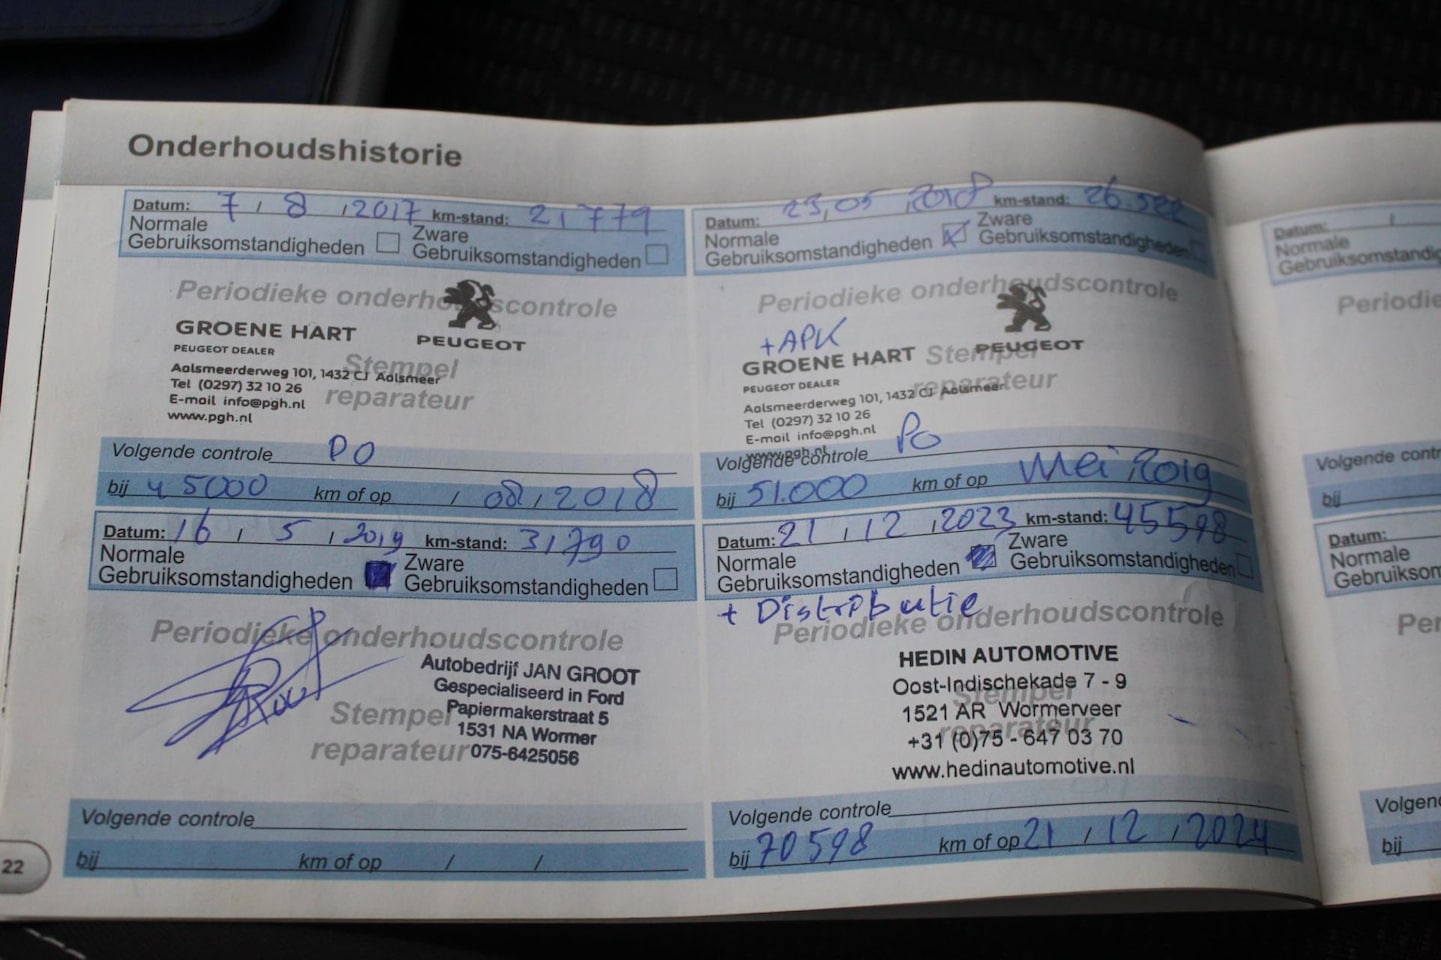 Onderhoudshistorie
Datum: 7 / 8 / 2017 km-stand: 21779
Normale
Gebruiksomstandigheden
Zware
Gebruiksomstandigheden
Periodieke onderhoudscontrole
GROENE HART
PEUGEOT DEALER
PEUGEOT
Aalsmeerderweg 101, 1432 CJ Aalsmeer
Tel (0297) 32 10 26
E-mail info@pgh.nl
www.pgh.nl
Stempel
reparateur
Volgende controle PO
bij 45000 km of op / 08 / 2018
Datum: 23, 05 2018 km-stand:
Normale
Gebruiksomstandigheden
Zware
Gebruiksomstandigheden
Periodieke onderhoudscontrole
+ APK
GROENE HART
PEUGEOT DEALER
PEUGEOT
Aalsmeerderweg 101, 1432 CJ Aalsmeer
Tel (0297) 32 10 26
E-mail info@pgh.nl
www.pgh.nl
Stempel
reparateur
Volgende controle PO
bij 51.000 km of op Mei 2019
Datum: 16 / 5 / 2019 km-stand: 31790
Normale
Gebruiksomstandigheden
Zware
Gebruiksomstandigheden
Periodieke onderhoudscontrole
Autobedrijf JAN GROOT
Gespecialiseerd in Ford
Papiermakerstraat 5
1531 NA Wormer
075-6425056
Stempel
reparateur
Volgende controle
bij km of op / /
Datum: 21 / 12 / 2023 km-stand: 45598
Normale
Gebruiksomstandigheden
Zware
Gebruiksomstandigheden
+ Distributie
Periodieke onderhoudscontrole
HEDIN AUTOMOTIVE
Oost-Indischekade 7 - 9
1521 AR Wormerveer
+31 (0)75 - 647 03 70
www.hedinautomotive.nl
Stempel
reparateur
Volgende controle
bij 70598 km of op 21 / 12 / 2024
22
Datum: /
Normale
Gebruiksomstandig
Periodie
Volgende contr
bij
Datum:
Normale
Gebruiksom
Per
Volgen
bij